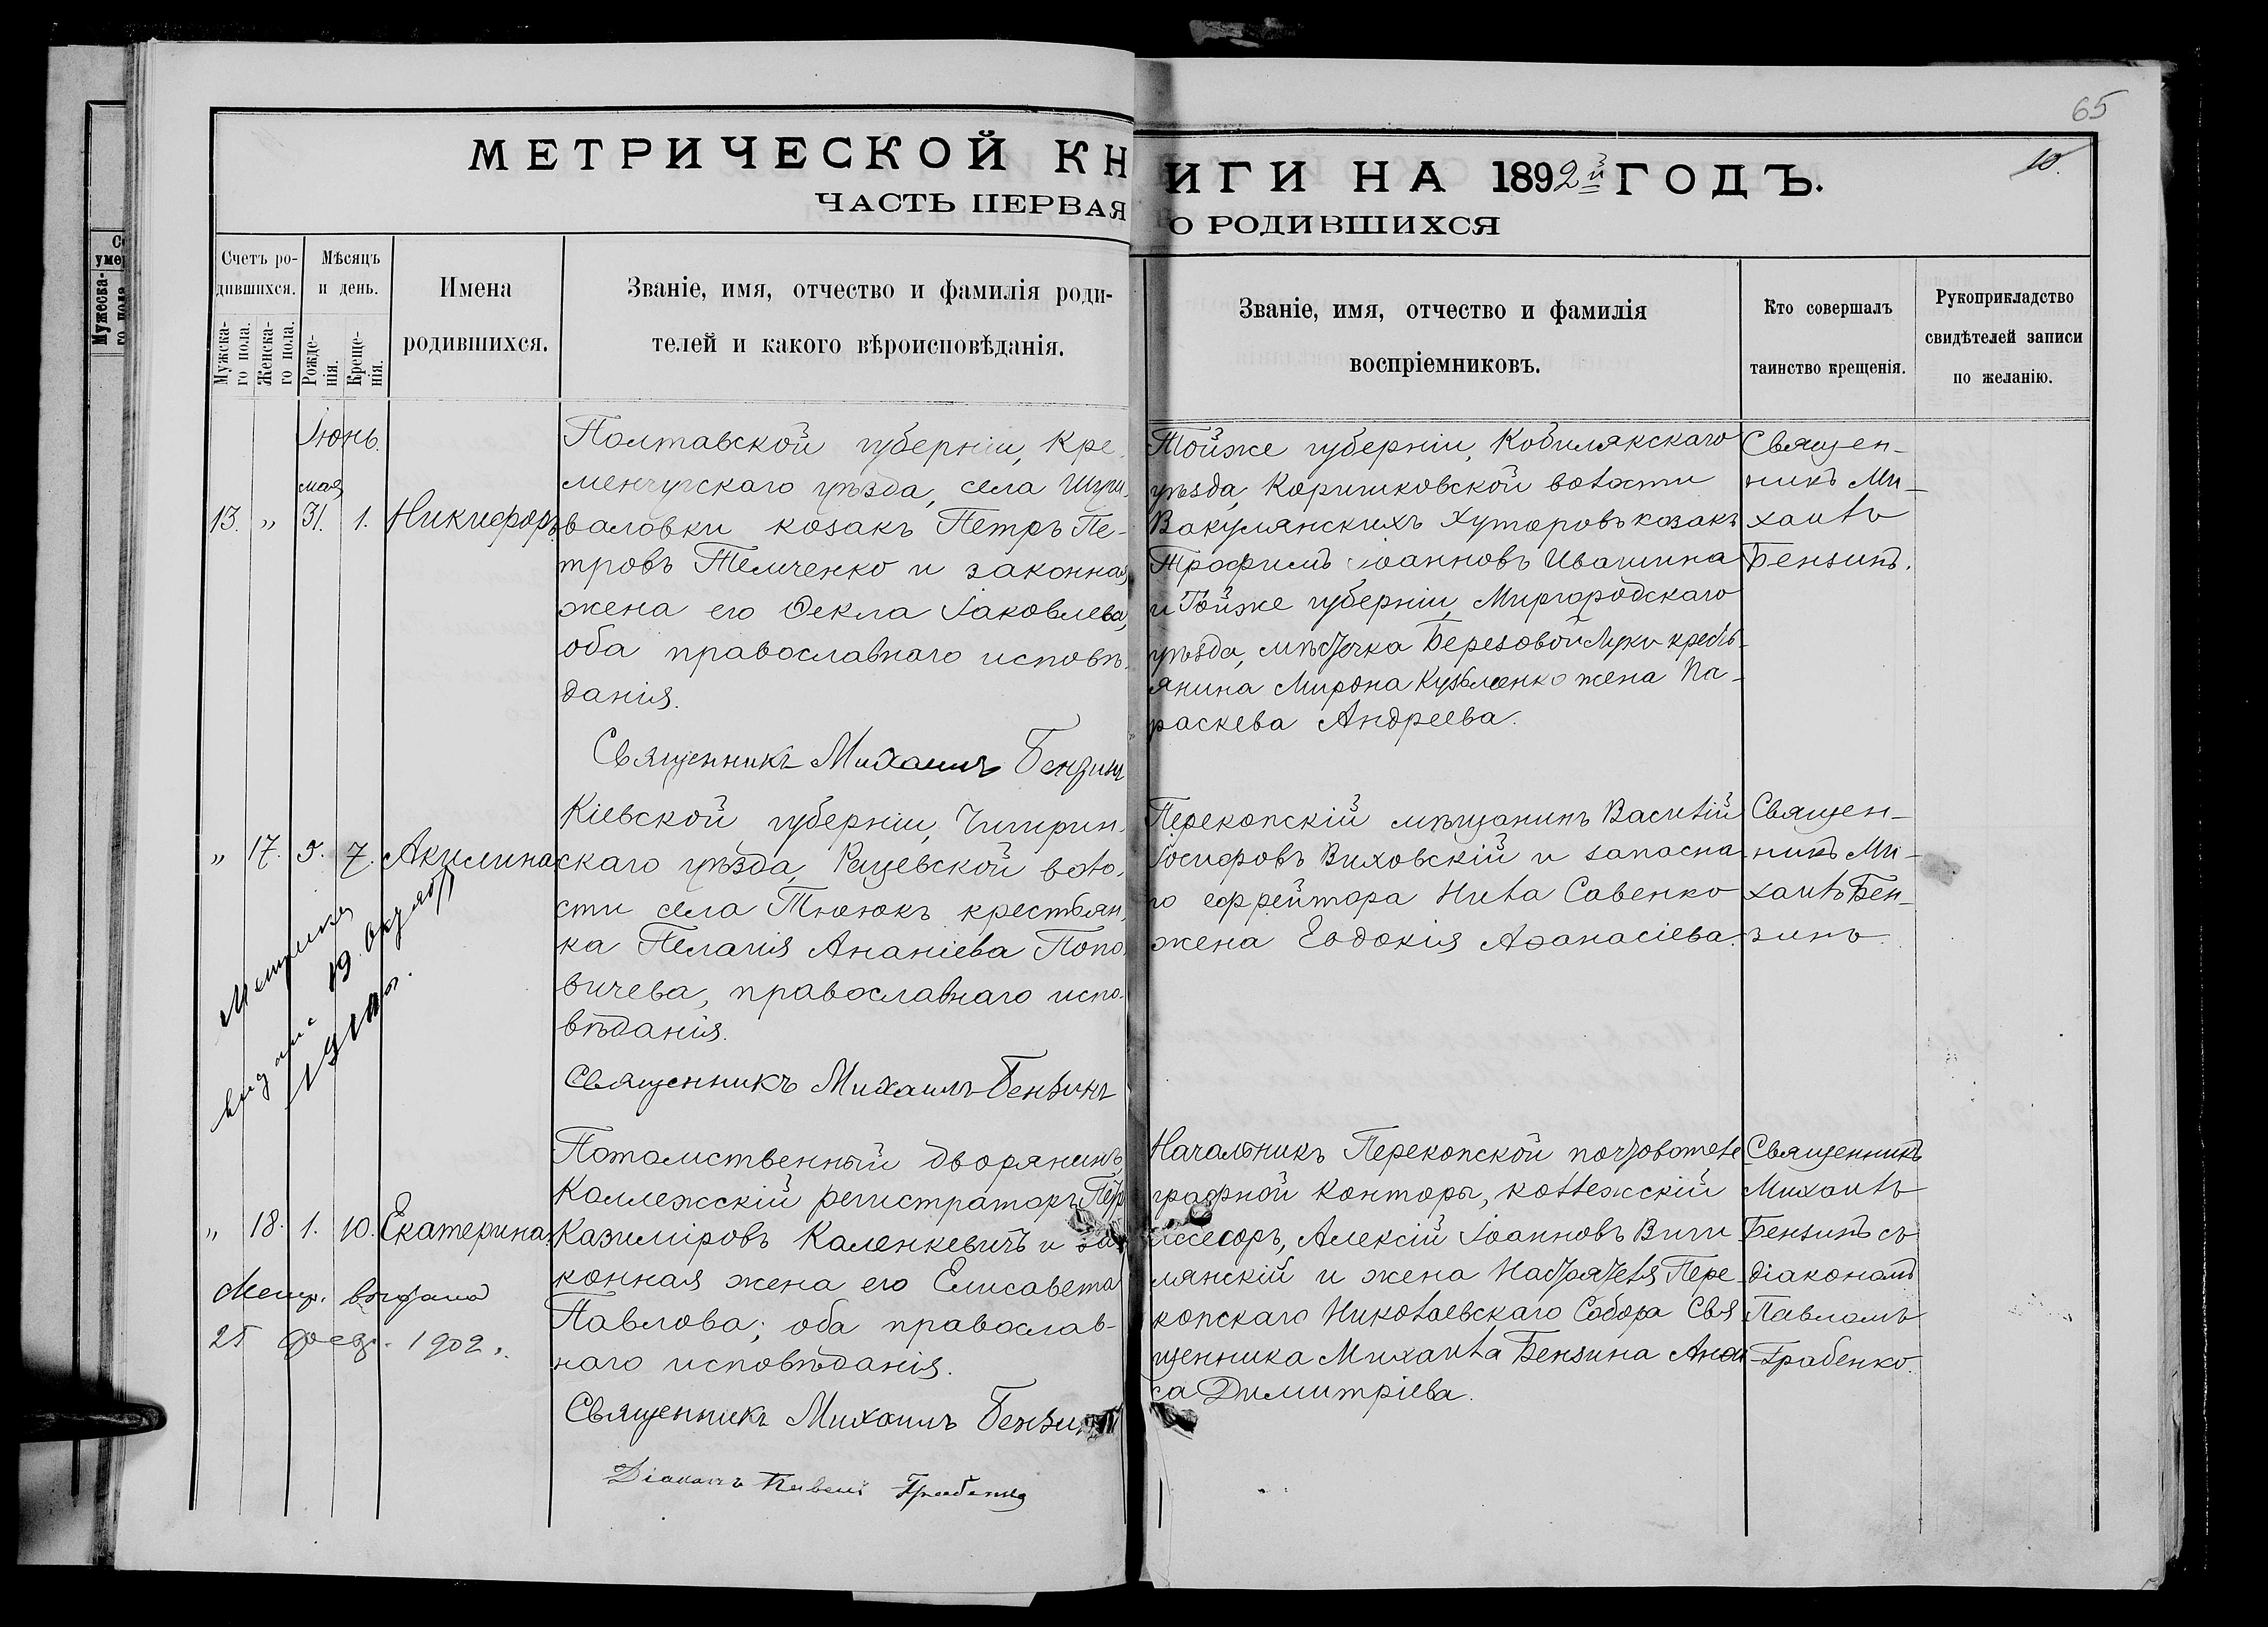 65
10.
МЕТРИЧЕСКОЙ КНИГИ НА 1892й ГОДЪ.
ЧАСТЬ ПЕРВАЯ О РОДИВШИХСЯ
Счетъ ро-
дившихся.
Мужска-
го пола.
Женска-
го пола.
Мѣсяцъ
и день.
Рожде-
нія.
Креще-
нія.
Имена
родившихся.
Званіе, имя, отчество и фамилія роди-
телей и какого вѣроисповѣданія.
Званіе, имя, отчество и фамилія
воспріемниковъ.
Кто совершалъ
таинство крещенія.
Рукоприкладство
свидѣтелей записи
по желанію.
Іюнь.
мая
13. „ 31. 1. Никифоръ
Полтавской губерніи, Кре-
менчугскаго уѣзда, села
валовки козакъ Петръ Пе-
тровъ Темченко и законная
жена его Ѳекла Іаковлева,
оба православнаго исповѣ-
данія.
Священникъ Михаилъ Бензинъ
Тойже губерніи, Кобилякскаго
уѣзда, волости
Вакулянскихъ Хуторовъ козакъ
Трофимъ Іоанновъ Ивашина
и Тойже губерніи, Миргородскаго
уѣзда, мѣстечка Березовой Луки крестъ-
янина Мирона Кузьменко жена Па-
раскева Андреева.
Священ-
никъ Ми-
хаилъ
Бензинъ.
„ 17. 5. 7. Акилина
Метрика
выдана 19 октября
Кіевской губерніи, Чигирин-
скаго уѣзда, Рацевской воло-
сти села Тнюкъ крестьян-
ка Пелагія Ананіева Попо-
вичева, православнаго испо-
вѣданія.
Священникъ Михаилъ Бензинъ
Перекопскій мѣщанинъ Василій
Іосифовъ Виховскій и запасна-
го ефрейтора Нила Савенко
жена Евдокія Аѳанасіева.
Священ-
никъ Ми-
хаилъ Бен-
зинъ.
„ 18. 1. 10. Екатерина.
Метр. выдана
25 1902.
Потомственный дворянинъ,
Коллежскій регистраторъ Петръ
Казиміровъ Каленкевичъ и за-
конная жена его Елисавета
Павлова; оба православ-
наго исповѣданія.
Священникъ Михаилъ Бензинъ
Діаконъ Павелъ Грабенко
Начальникъ Перекопской почтовотеле
графной конторы, коллежскій
ассесоръ, Алексій Іоанновъ Виги
лянскій и жена Настоятеля Пере-
копскаго Николаевскаго Собора Свя
щенника Михаила Бензина Анои
са Димитріева.
Священникъ
Михаилъ
Бензинъ съ
діакономъ
Павломъ
Грабенко.